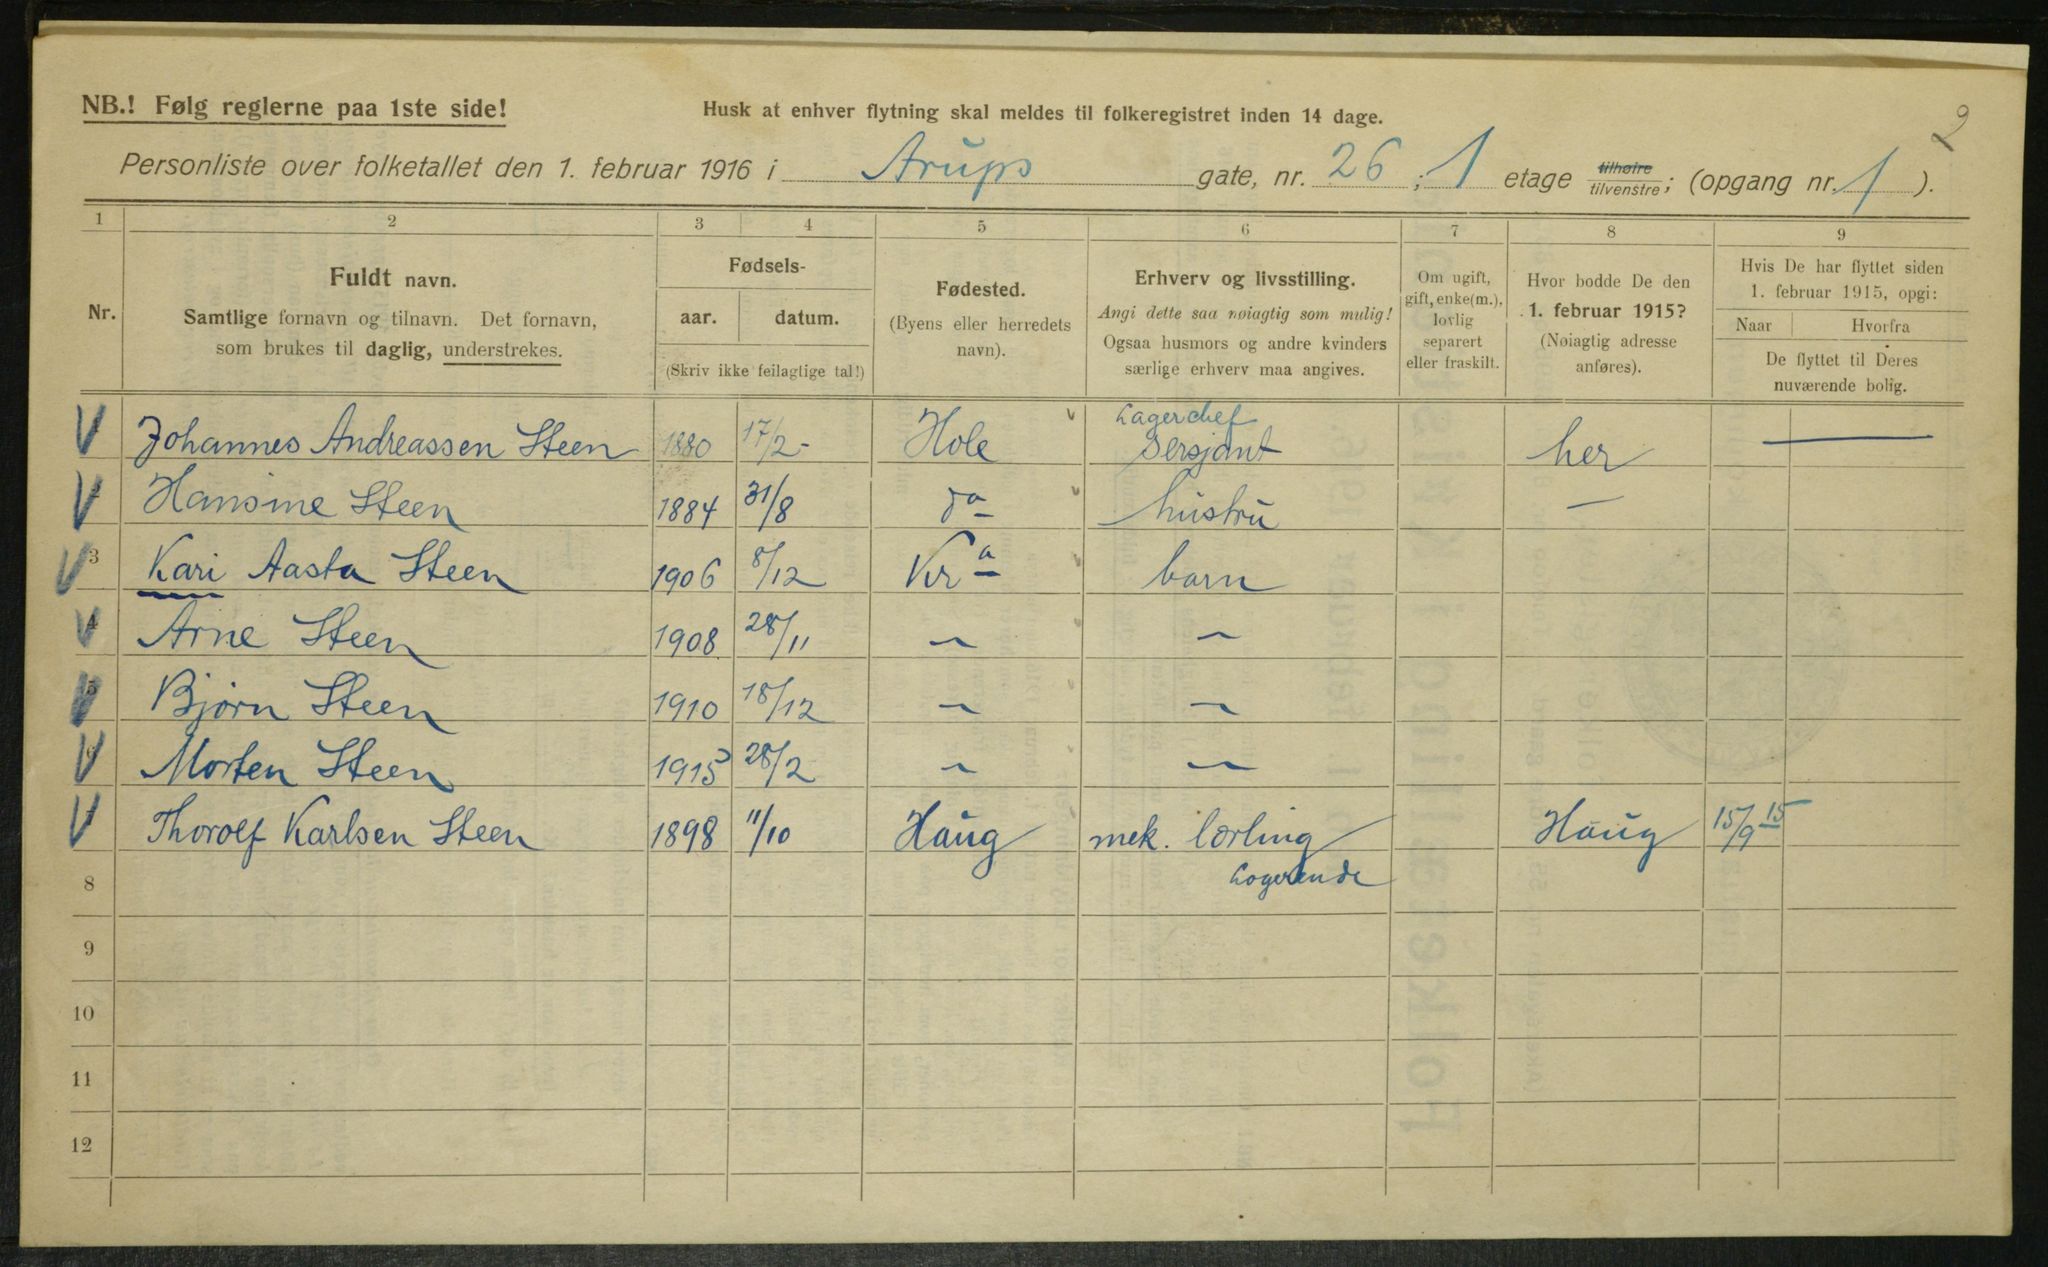 2
NB.! Følg reglerne paa 1ste side! Husk at enhver flytning skal meldes til folkeregistret inden 14 dage.
Personliste over folketallet den 1. februar 1916 i Arups gate, nr. 26 ; 1 etage tilhøire tilvenstre; (opgang nr. 1 ).
1 2 3 4 5 6 7 8 9
Nr.
Fuldt navn.
Samtlige fornavn og tilnavn. Det fornavn,
som brukes til daglig, understrekes.
Fødsels-
aar. datum.
(Skriv ikke feilagtige tal!)
Fødested.
(Byens eller herredets
navn).
Erhverv og livsstilling.
Angi dette saa nøiagtig som mulig!
Ogsaa husmors og andre kvinders
særlige erhverv maa angives.
Om ugift,
gift, enke(m.),
lovlig
separert
eller fraskilt.
Hvor bodde De den
1. februar 1915?
(Nøiagtig adresse
anføres).
Hvis De har flyttet siden
1. februar 1915, opgi:
Naar Hvorfra
De flyttet til Deres
nuværende bolig.
Lagerchef
Johannes Andreassen Steen 1880 17/2 - Hole Sersjant her —
Hansine Steen 1884 31/8 do hustru —
3 Kari Aasta Steen 1906 8/12 Kra barn
4 Arne Steen 1908 28/11 — —
5 Bjørn Steen 1910 18/12 — —
6 Morten Steen 1915 28/2 — —
Thorolf Karlsen Steen 1898 11/10 Haug mek. lærling Haug 15/9 15
8 Logerende
9
10
11
12